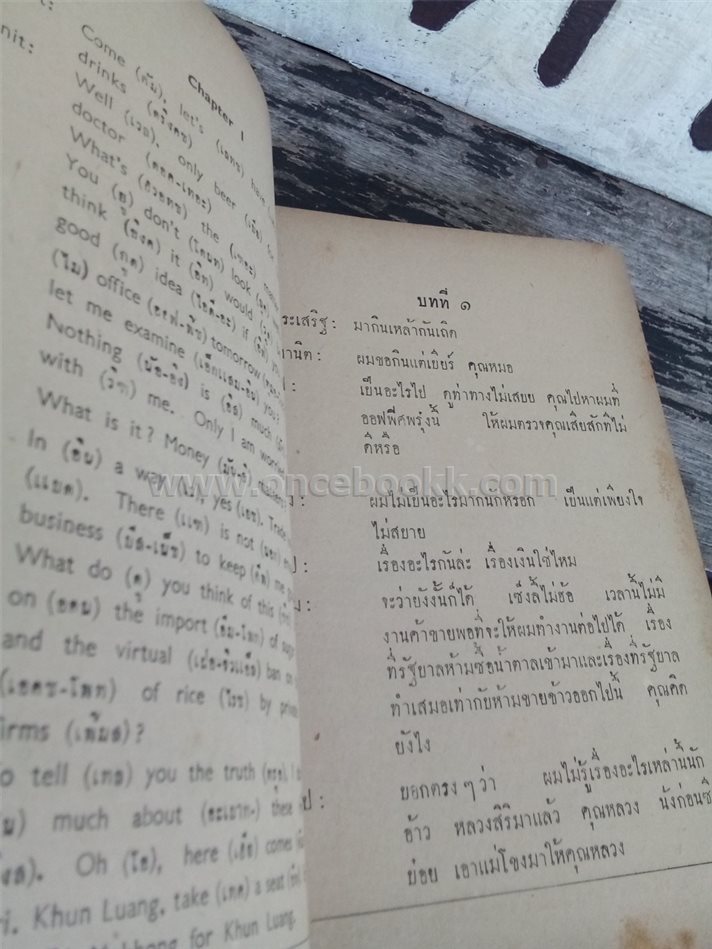 Chapter 1
nit: Come (คัม), let's (เลทซ) have
drinks (ดริ๊งคซ)
Well (เวล), only beer (เบีย) for
doctor (ดอค-เทอะ)
What's (ฮวอทซ) the (เธอะ)
You (ยู) don't (โดนท) look
think (ธิงค) it (อิท) would
good (กูด) idea (ไอดี-อะ) if
(ไม) office (ออฟ-ฟิซ) tomorrow
let me examine (เอ็กแสม-อิน) you
Nothing (นัธ-อิง) is (อิส) much
with (วิธ) me. Only I am
What is it? Money (มัน-นี)
In (อิน) a way (เว), yes (เยส). Trade
(แบด). There (แธ) is not
business (บิ๊ส-เน็ซ) to keep (คีพ) me
What do (ดู) you think of this
on (ออน) the import (อิม-โพท) of
and the virtual (เฝอ-ชิวเอ็ล) ban on
(เอคซ-โพท) of rice (ไรซ) by
firms (เฟิมส)?
to tell (เทล) you the truth
much about (อะเบาท-) these
Oh (โอ), here (เฮีย) comes
Khun Luang, take (เทค) a seat
for Khun Luang.
บทที่ ๑
ระเสริฐ: มากินเหล้ากันเถิด
านิต: ผมขอกินแต่เบียร์ คุณหมอ
เป็นอะไรไป ดูท่าทางไม่เสบย คุณไปหาผมที่
ออฟฟีศพรุ่งนี้ ให้ผมตรวจคุณเสียสักทีไม่
ดีหรือ
www.oncebookk.com
ผมไม่เป็นอะไรมากนักหรอก เป็นแต่เพียงใจ
ไม่สบาย
เรื่องอะไรกันล่ะ เรื่องเงินใช่ไหม
จะว่ายังงั้นก็ได้ เซ็งลี้ไม่ฮ้อ เวลานี้ไม่มี
งานค้าขายพอที่จะให้ผมทำงานต่อไปได้ เรื่อง
ที่รัฐบาลห้ามซื้อน้ำตาลเข้ามาและเรื่องที่รัฐบาล
ทำเสมอเท่ากับห้ามขายข้าวออกไปนี้ คุณคิด
ยังไง
บอกตรง ๆ ว่า ผมไม่รู้เรื่องอะไรเหล่านี้นัก
อ้าว หลวงสิริมาแล้ว คุณหลวง นั่งก่อนซิ
บ๋อย เอาแม่โขงมาให้คุณหลวง